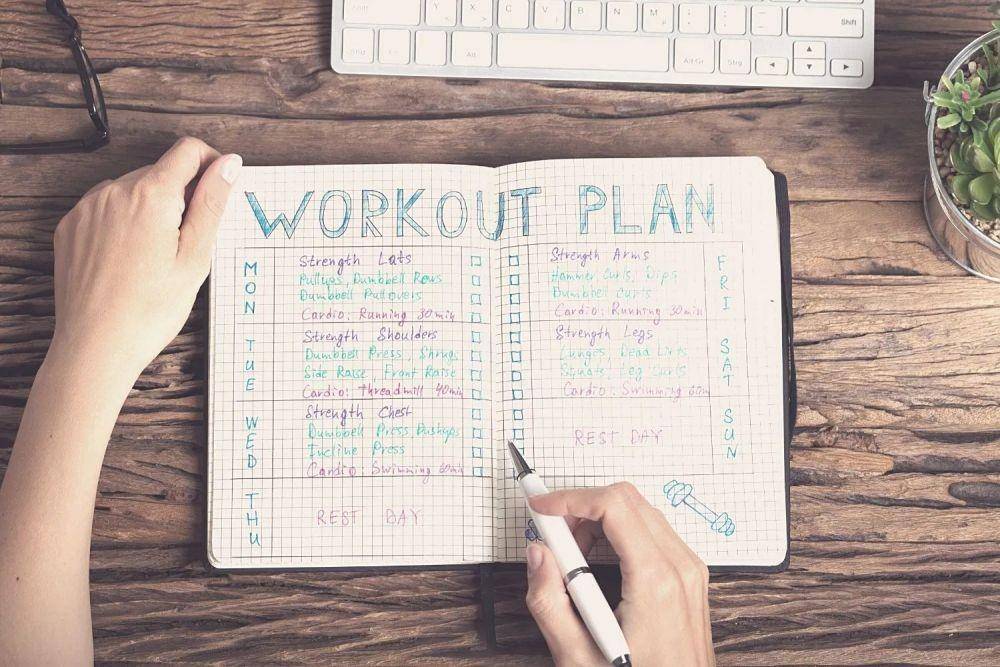 Y X C V B N M
Shift
Alt Alt Gr Strg
WORKOUT PLAN
MON
Strength Lats
Pullups, Dumbbell Rows
Dumbbell Pullovers
Cardio: Running 30min
TUE
Strength Shoulders
Dumbbell Press, Shrugs
Side Raise, Front Raise
Cardio: Threadmill 40min
WED
Strength Chest
Dumbbell Press, Pushups
Incline Press
Cardio Swimming 60min
THU
REST DAY
FRI
Strength Arms
Hammer Curls, Dips
Dumbbell Curls
Cardio: Running 30min
SAT
Strength Legs
Lunges, Dead Lifts
Squats, Leg Curls
Cardio: Swimming 60m
SUN
REST DAY